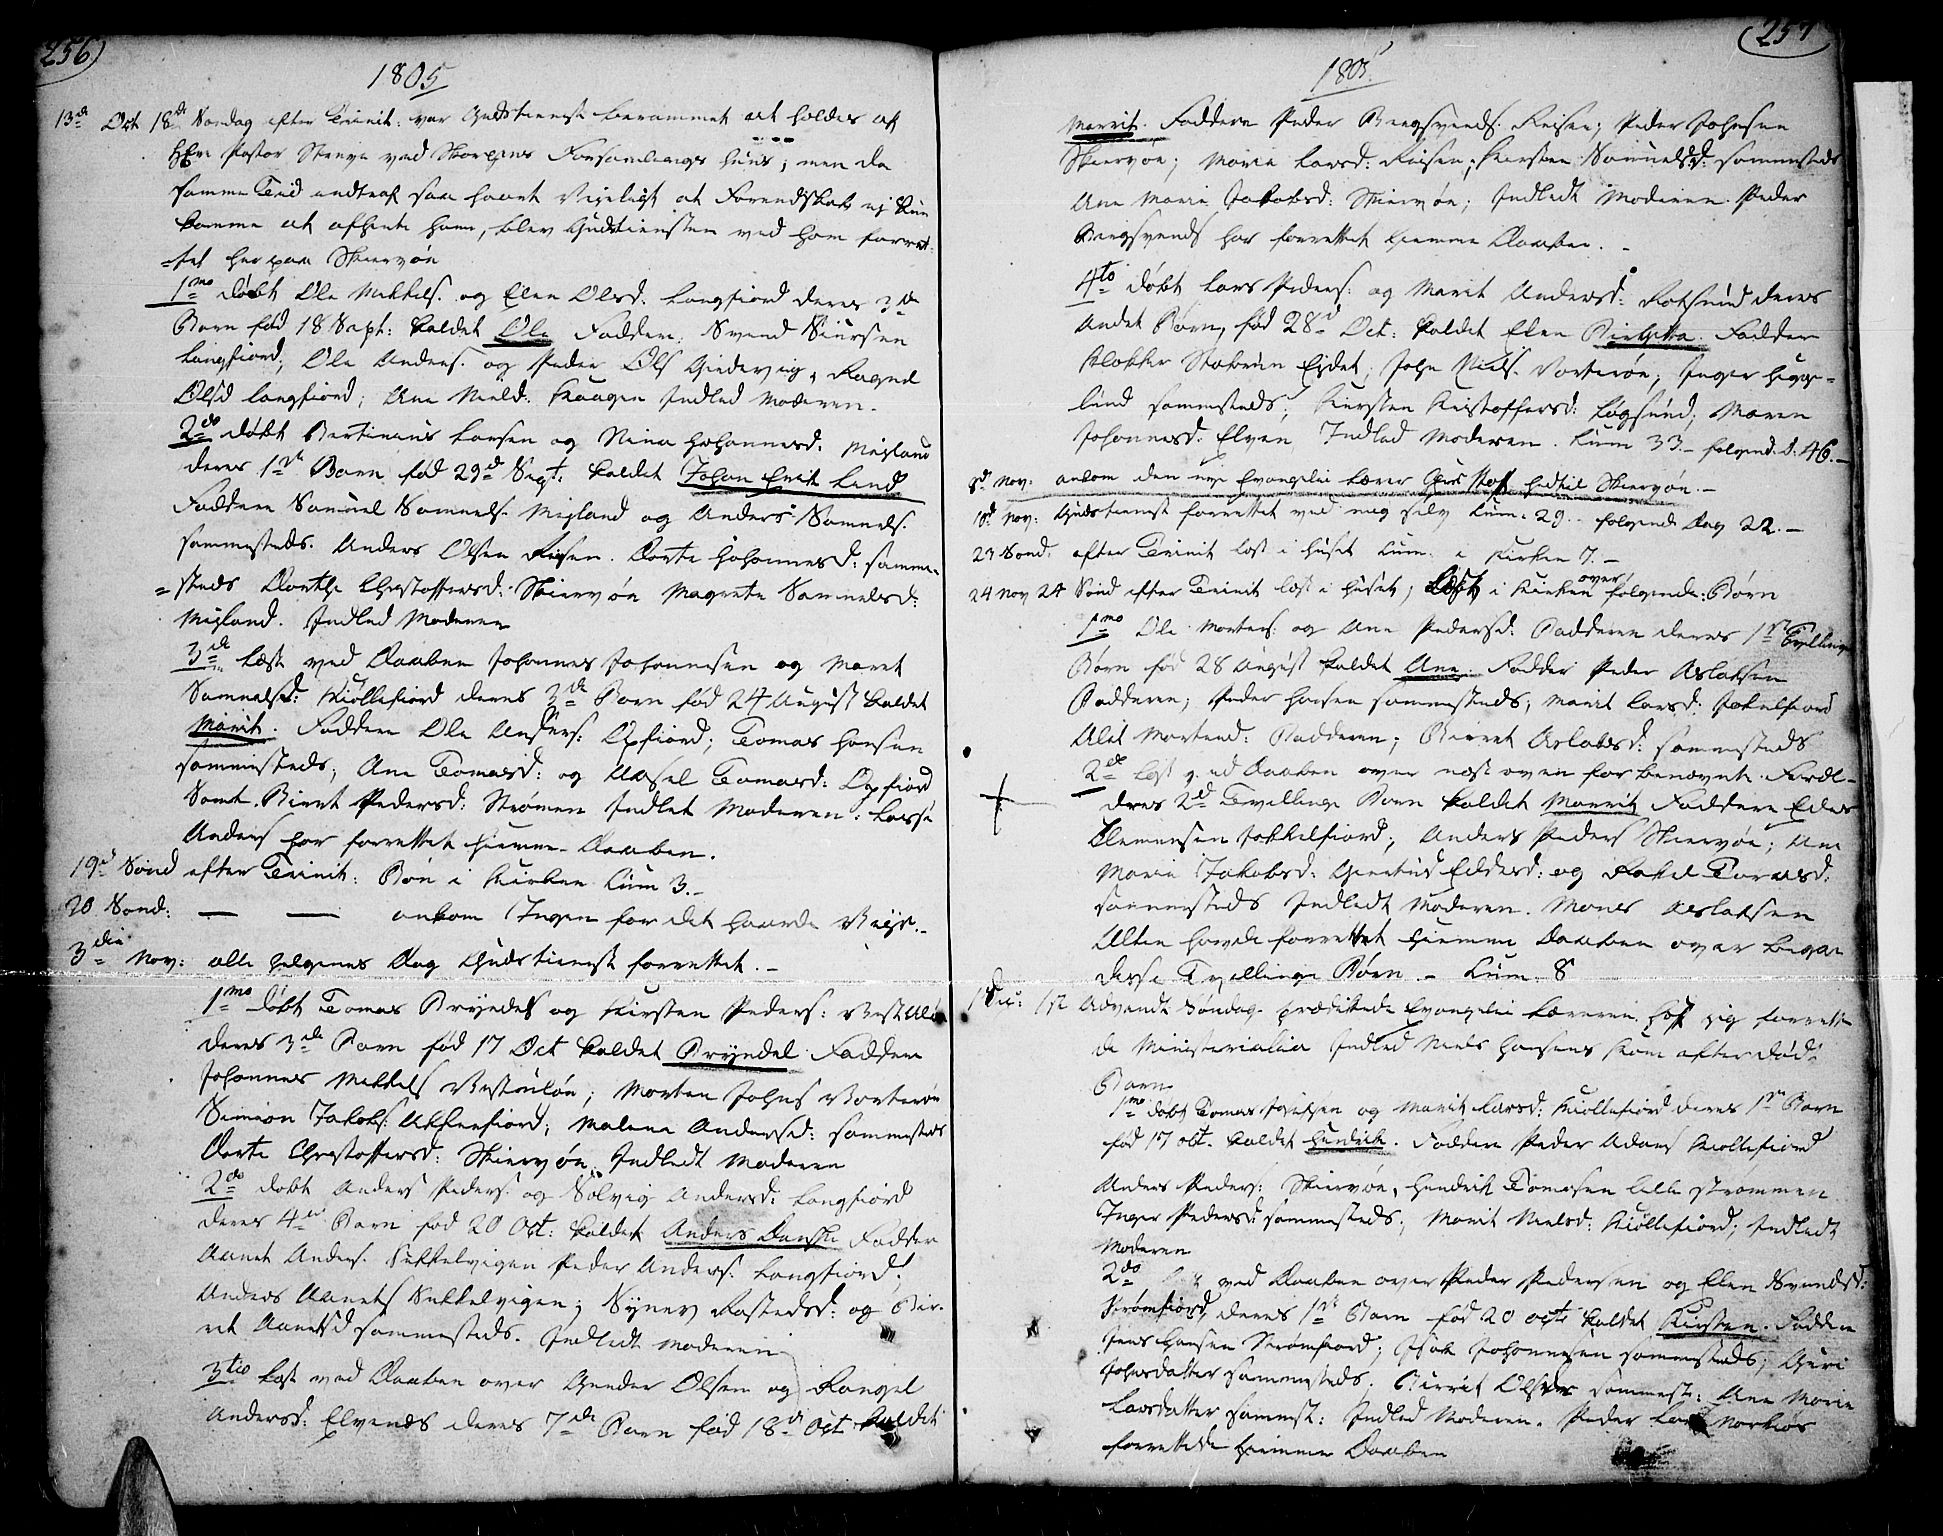 256
1805
13de Oct 18de Søndag efter Trinit: var Gudstienest berammet at holdes af
HErr Pastor Steuge ved Skorpens Forsamlings Huus; men da
samme Tiid indtraf saa haart Vejrligt at Forendskab ej kun
komme at afhente ham, blev Gudstiensten ved ham forret
=tet her paa Skiervøe
1mo døbt Ole Mikkels. og Elen Olsd. Langfiord deres 3de
Barn fød 18 Sept: kaldet Ole Faddere. Svend Siursen
Langfiord; Ole Anders. og Peder Ols Giedevig, Ragnel
Olsd Langfiord; Ane Nield: Kaagen Indled Moderen.
2do døbt Bertinius Larsen og Nina Johannesd. Meiland
deres 1ste Barn fød 29de Sept: kaldet Johan Erik Lind
Faddere Samuel Samuels. Meiland og Anders Samuels.
sammesteds. Anders Olsen Reisen. Dorte Johannesd: samme-
=steds Dorthe Christoffersd: Skiervøe Magrete Samuelsd:
Meiland. Indled Moderen
3de Læst ved Daaben Johannes Johannesen og Maret
Samuelsd: Kiøllefiord deres 3de Barn fød 24 August kaldet
Marit. Faddere Ole Anders: Oxfiord; Tomas Hansen
sammesteds; Ane Tomasd: og Axsel Tomasd: Oxfiord
Samt Birit Pedersd: Strømen Indlet Moderen: Lasse
Anders har forrettet hiemme Daaben.
19de Sønd efter Trinit: Bøn i Kirken Cum 3.-
20 Sønd: — — ankom Ingen for det haarde Vejr.-
3die Nov: alle Helgenes Dag Gudstienest forrettet.-
1mo døbt Tomas Bryndels og Kirsten Peders: Vest
deres 3de Barn fød 17 Oct kaldet Bryndel Faddere
Johannes Mikkels Vesteuløe; Morten Johns Vorterøe
Simion Jakobs: Alteefiord; Malene Andersd: sammesteds
Dorte Christoffersd: Skiervøe. Indledt Moderen
2do døbt Anders Peders. og Solvig Andersd: Langfiord
deres 4de Barn fød 20 Oct: kaldet Anders Danske Fadder
Aanet Anders. Sekkelvigen Peder Anders: Langfiord.
Anders Aanets Sekkelvigen; Synev Rastedsd: og Bir-
rit Aanetsd sammesteds. Indledt Moderen
3tio Læst ved Daaben over Gunder Olsen og Rangel
Andersd: Elvenes deres 7de Barn fød 18de Oct kaldet
257
1805
Marrit. Faddere Peder Bergsvends: Reisen; Peder Johnsen
Skiervøe; Marie Larsd: Reisen; Kirsten Samuelsd: sammesteds
Ane Marie Jakobsd: Skiervøe; Indledt Moderen. Peder
Bergsvends har forrettet hiemme Daaben.
4to døbt Lars Peders: og Marit Andersd: Rotsund deres
Andet Børn, fød 28de Oct: kaldet Elen Birgitta. Faddere
Klokker Eidet; John Niels. Vorterøe; Inger Hegge-
lund sammesteds; Kirsten Kristoffersd: Løgsund; Maren
Johannesd. Elven Indled Moderen. Cum 33.- folgend. d: 46.-
8de Nov: ankom den nye Evangelie Lærer hidtil Skiervøe.-
10de Nov: Gudstienest forrettet ved mig selv Cum. 29.- folgende Dag 22.-
23 Sønd: efter Trinit læst i Huset Cum. i Kirken 7.-
24 Nov 24 Sønd efter Trinit læst i Huset; Læst i Kirken over folgende: Børn
1mo Ole Mortens: og Ane Pedersd: Badderen deres 1ste Tvillinge
Børn fød 28 August kaldet Ane. Fadder Peder Aslaksen
Badderen; Peder Hansen sammesteds; Marit Larsd: Jokelfiord
Alet Mortend: Badderen; Birret Aslaksd: sammesteds
2de Læst ved Daaben over næst oven for benævnte. Foræl-
dres 2de Tvellinge Barn kaldet Marrit Faddere Edis
Clemensen Jokkelfiord; Anders Peders Skiervøe; Ane
Marie Jakobsd: Giertrud Eddesd: og Rakel Tomasd:
sammesteds Indledt Moderen. Mones Aslaksen
Alten havde forrettet hiemme Daaben over begge
disse Tvellinge Børn.- Cum. 8
1 Dec: 1ste Advendt Søndag. prædikede Evangelie Læreren. forrette
de Ministerialia Indled Niels Hansens Kone efter død
Barn
1mo døbt Tomas og Marit Larsd: Kiøllefiord deres 1ste Barn
fød 17 Oct. kaldet Hendrik. Faddere Peder Adams Kiøllefiord
Anders Peders: Skiervøe, Hendrik Tomesen lille Strømmen
Inger Pedersd: sammesteds; Marit Nielsd: Kiøllefiord; Indledt
Moderen
2do ved Daaben over Peder Pedersen og Elen Svendsd:
Strømfiord, deres 1ste Barn fød 20 Octr kaldet Kirsten. Faddere
Jens Hansen Strømfiord; Isak Johannesen sammesteds; Guri
Johnsdatter sammesteds. Birrit Olsdr sammest: Ane Marie
Larsdatter sammst: Indled Moderen. Peder Lars
forrettede hiemme Daaben